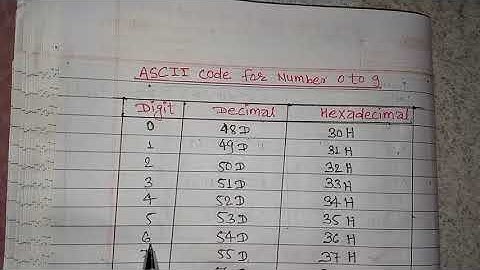 ASCII code for Number 0 to 9
Digit Decimal Hexadecimal
0 48D 30H
1 49D 31H
2 50D 32H
3 51D 33H
4 52D 34H
5 53D 35H
6 54D 36H
55D 37H